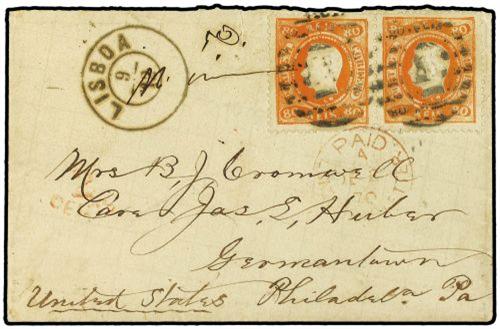 LISBOA
9
80 80
80 80
PAID
Mrs B. J Cromwell
Care Jas. S. Huber
Germantown
United States Philadela Pa